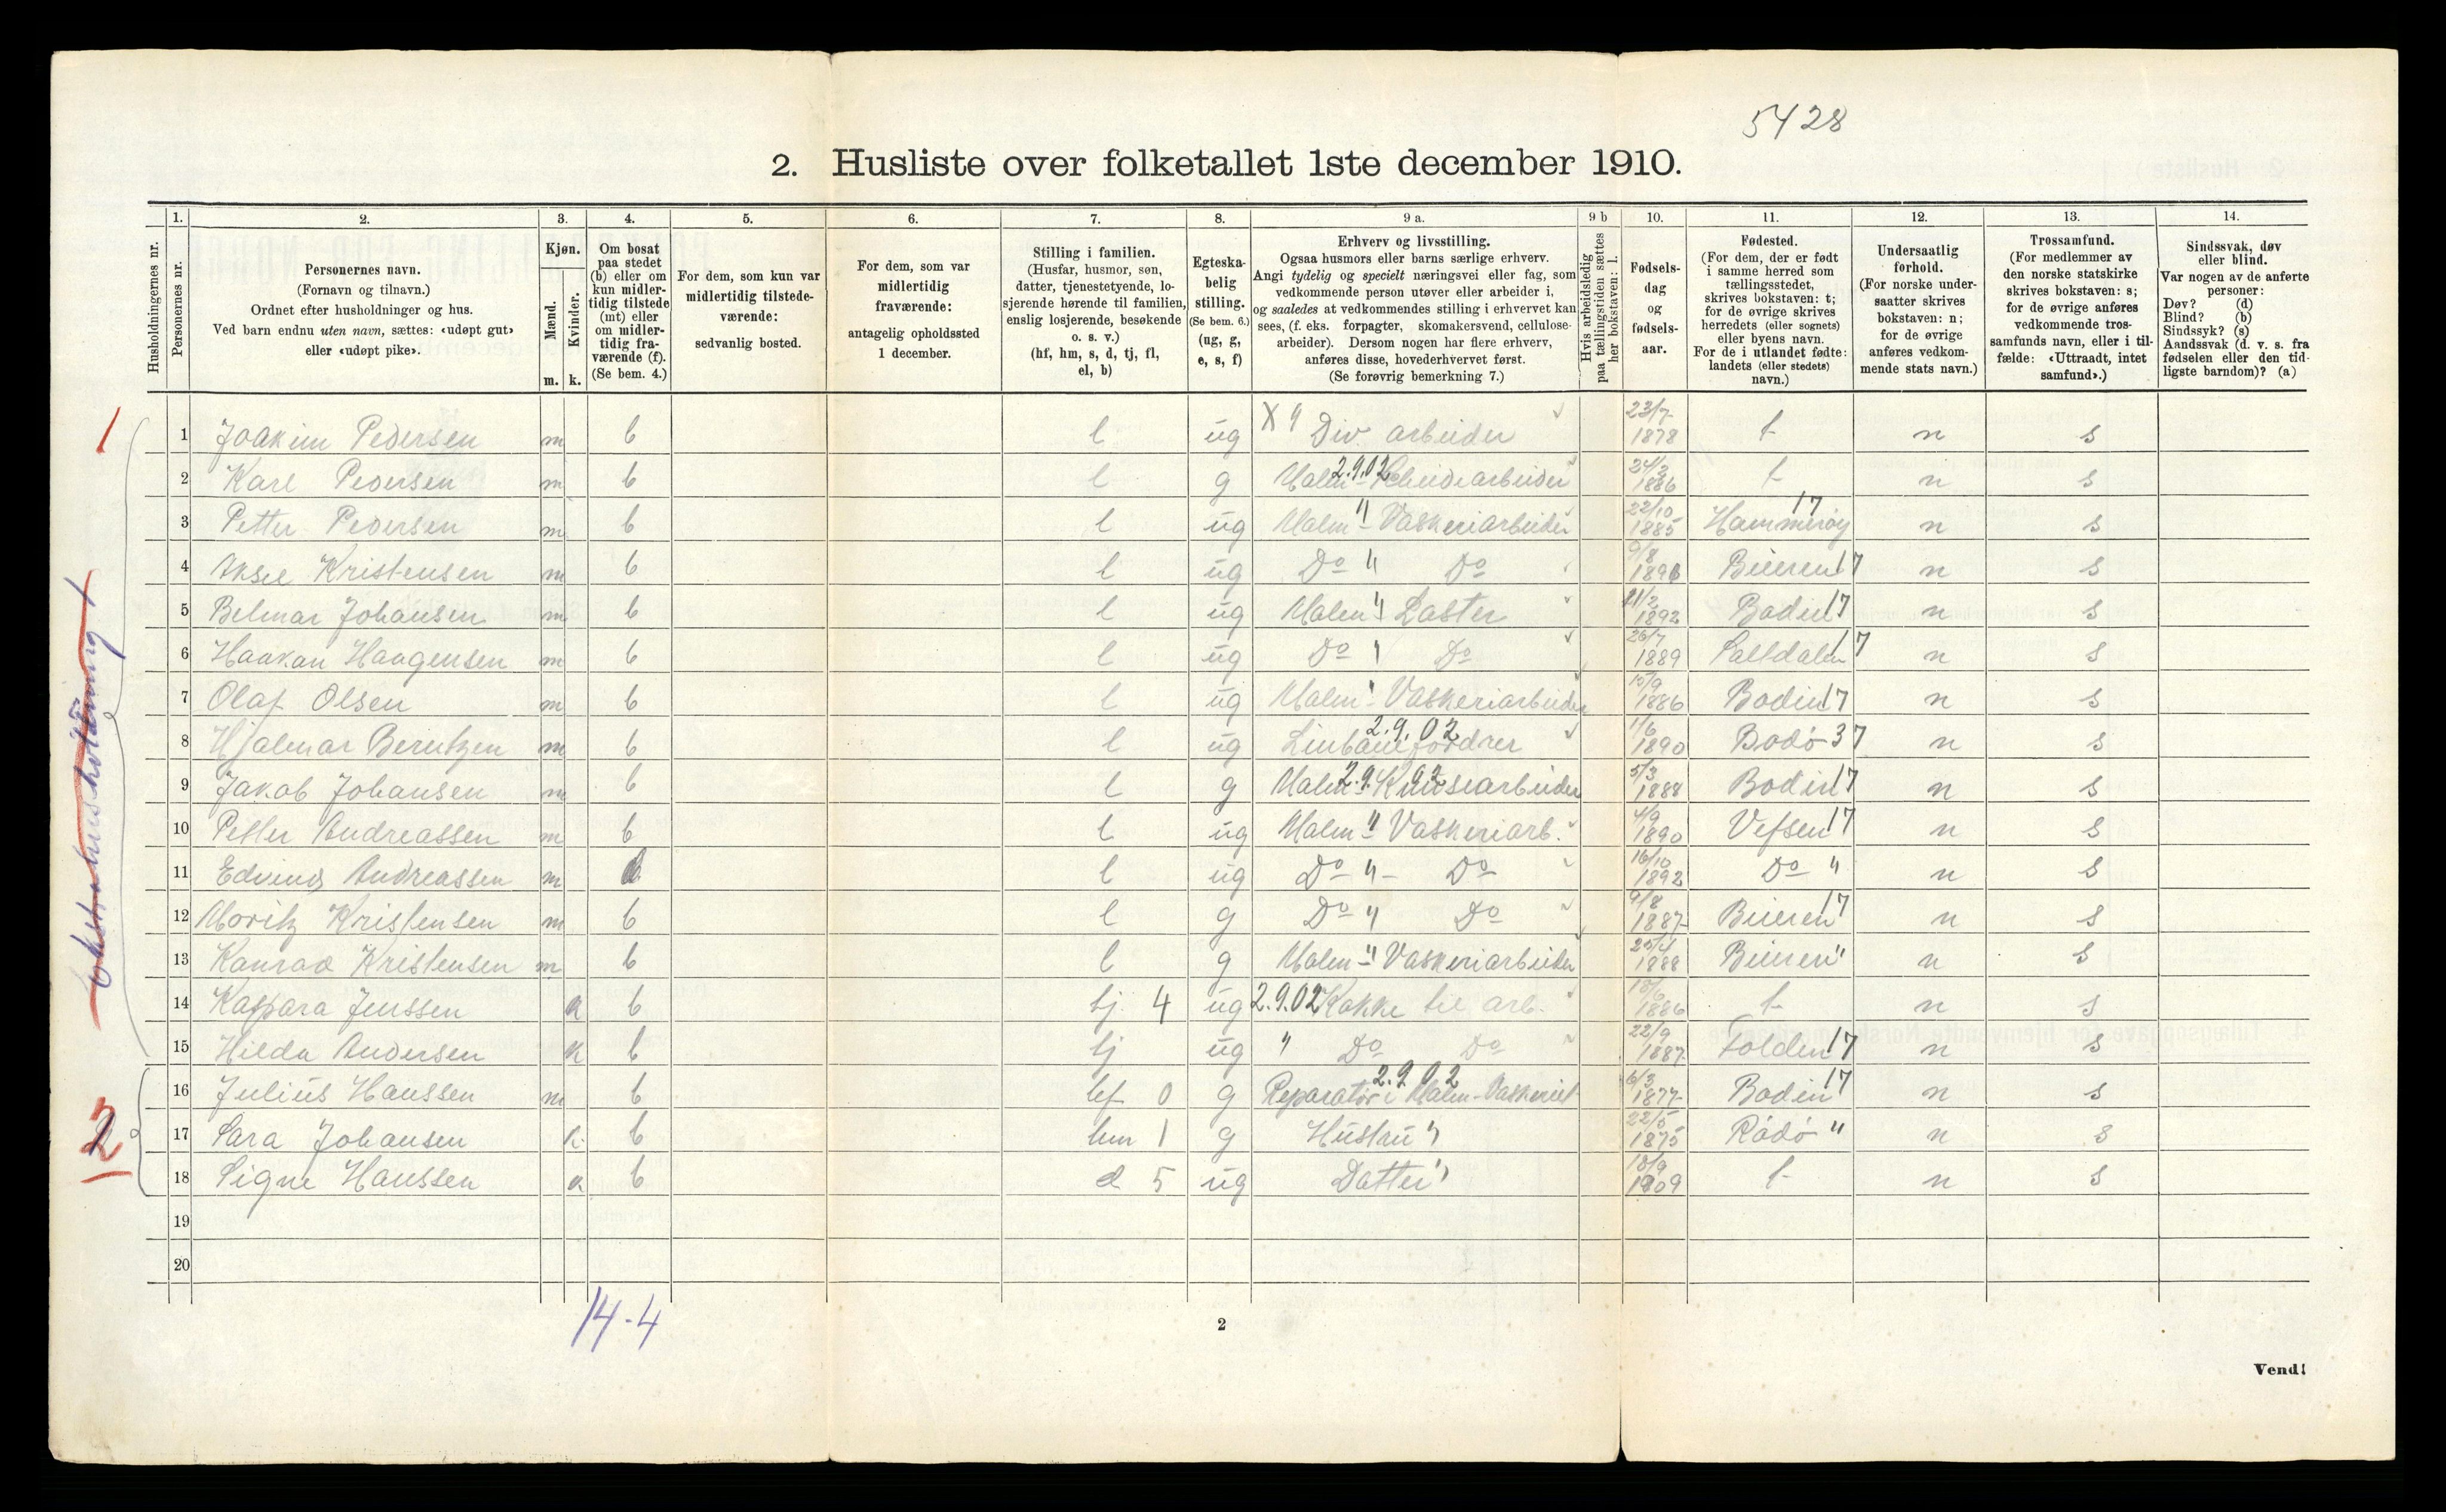 5428
2. Husliste over folketallet 1ste december 1910.
Husholdningernes nr.
1. Personernes nr.
2. Personernes navn. (Fornavn og tilnavn.) Ordnet efter husholdninger og hus. Ved barn endnu uten navn, sættes: «udøpt gut» eller «udøpt pike».
3. Kjøn. Mænd. m. Kvinder. k.
4. Om bosat paa stedet (b) eller om kun midlertidig tilstede (mt) eller om midlertidig fraværende (f). (Se bem. 4.)
5. For dem, som kun var midlertidig tilstedeværende: sedvanlig bosted.
6. For dem, som var midlertidig fraværende: antagelig opholdssted 1 december.
7. Stilling i familien. (Husfar, husmor, søn, datter, tjenestetyende, losjerende hørende til familien, enslig losjerende, besøkende o. s. v.) (hf, hm, s, d, tj, fl, el, b)
8. Egteskabelig stilling. (Se bem. 6.) (ug, g, e, s, f)
9 a. Erhverv og livsstilling. Ogsaa husmors eller barns særlige erhverv. Angi tydelig og specielt næringsvei eller fag, som vedkommende person utøver eller arbeider i, og saaledes at vedkommendes stilling i erhvervet kan sees, (f. eks. forpagter, skomakersvend, cellulose-arbeider). Dersom nogen har flere erhverv, anføres disse, hovederhvervet først. (Se forøvrig bemerkning 7.)
9 b Hvis arbeidsledig paa tællingstiden sættes her bokstaven: l.
10. Fødselsdag og fødselsaar.
11. Fødested. (For dem, der er født i samme herred som tællingsstedet, skrives bokstaven: t; for de øvrige skrives herredets (eller sognets) eller byens navn. For de i utlandet fødte: landets (eller stedets) navn.)
12. Undersaatlig forhold. (For norske undersaatter skrives bokstaven: n; for de øvrige anføres vedkommende stats navn.)
13. Trossamfund. (For medlemmer av den norske statskirke skrives bokstaven: s; for de øvrige anføres vedkommende trossamfunds navn, eller i tilfælde: «Uttraadt, intet samfund».)
14. Sindssvak, døv eller blind. Var nogen av de anførte personer: Døv? (d) Blind? (b) Sindssyk? (s) Aandssvak (d. v. s. fra fødselen eller den tidligste barndom)? (a)
1 Joakim Pedersen m b l ug X " Div. arbeider 23/7 1878 t n s
2 Karl Pedersen m b l g Malm- 2.9.02 Scheidearbeider 24/2 1886 t n s
3 Petter Pedersen m b l ug Malm " Vaskeriarbeider 22/10 1885 Hammerøy 17 n s
4 Aksel Kristensen m b l ug Do " Do 9/8 1896 Beieren 17 n s
5 Belmar Johansen m b l ug Malm " Laster 11/2 1892 Bodin 17 n s
6 Haakan Haagensen m b l ug Do " Do 26/7 1889 Saltdalen 17 n s
7 Olaf Olsen m b l ug Malm " Vaskeriarbeider 15/9 1886 Bodin 17 n s
8 Hjalmar Berntzen m b l ug 2.9.02 Linbanefordrer 1/6 1890 Bodø 37 n s
9 Jakob Johansen m b l g Malm 2.9.02 Knusearbeider 5/3 1888 Bodin 17 n s
10 Petter Andreassen m b l ug Malm " Vaskeriarb. 4/9 1890 Vefsen 17 n s
11 Edving Andreassen m b l ug Do " - Do 16/10 1892 Do " n s
12 Moritz Kristensen m b l g Do " Do 9/8 1887 Beieren 17 n s
13 Konrad Kristensen m b l g Malm " Vaskeriarbeider 25/4 1888 Beieren " n s
14 Kaspara Jenssen k b tj. 4 ug 2.9.02 Kokke til arb. 1886 t n s
15 Hilda Andersen k b tj ug " Do Do 22/9 1887 Folden 17 n s
16 Julius Hanssen m b hf 0 g 2.9.02 Reparatør i Malm-Vaskeriet 6/3 1877 Bodin 17 n s
17 Sara Johansen k b hm 1 g Hustru " 22/5 1875 Rødø " n s
18 Signe Hanssen k b d 5 ug Datter " 18/9 1909 t n s
19
20
1
Ekstrahusholdning 1
2
14-4
2
Vend!